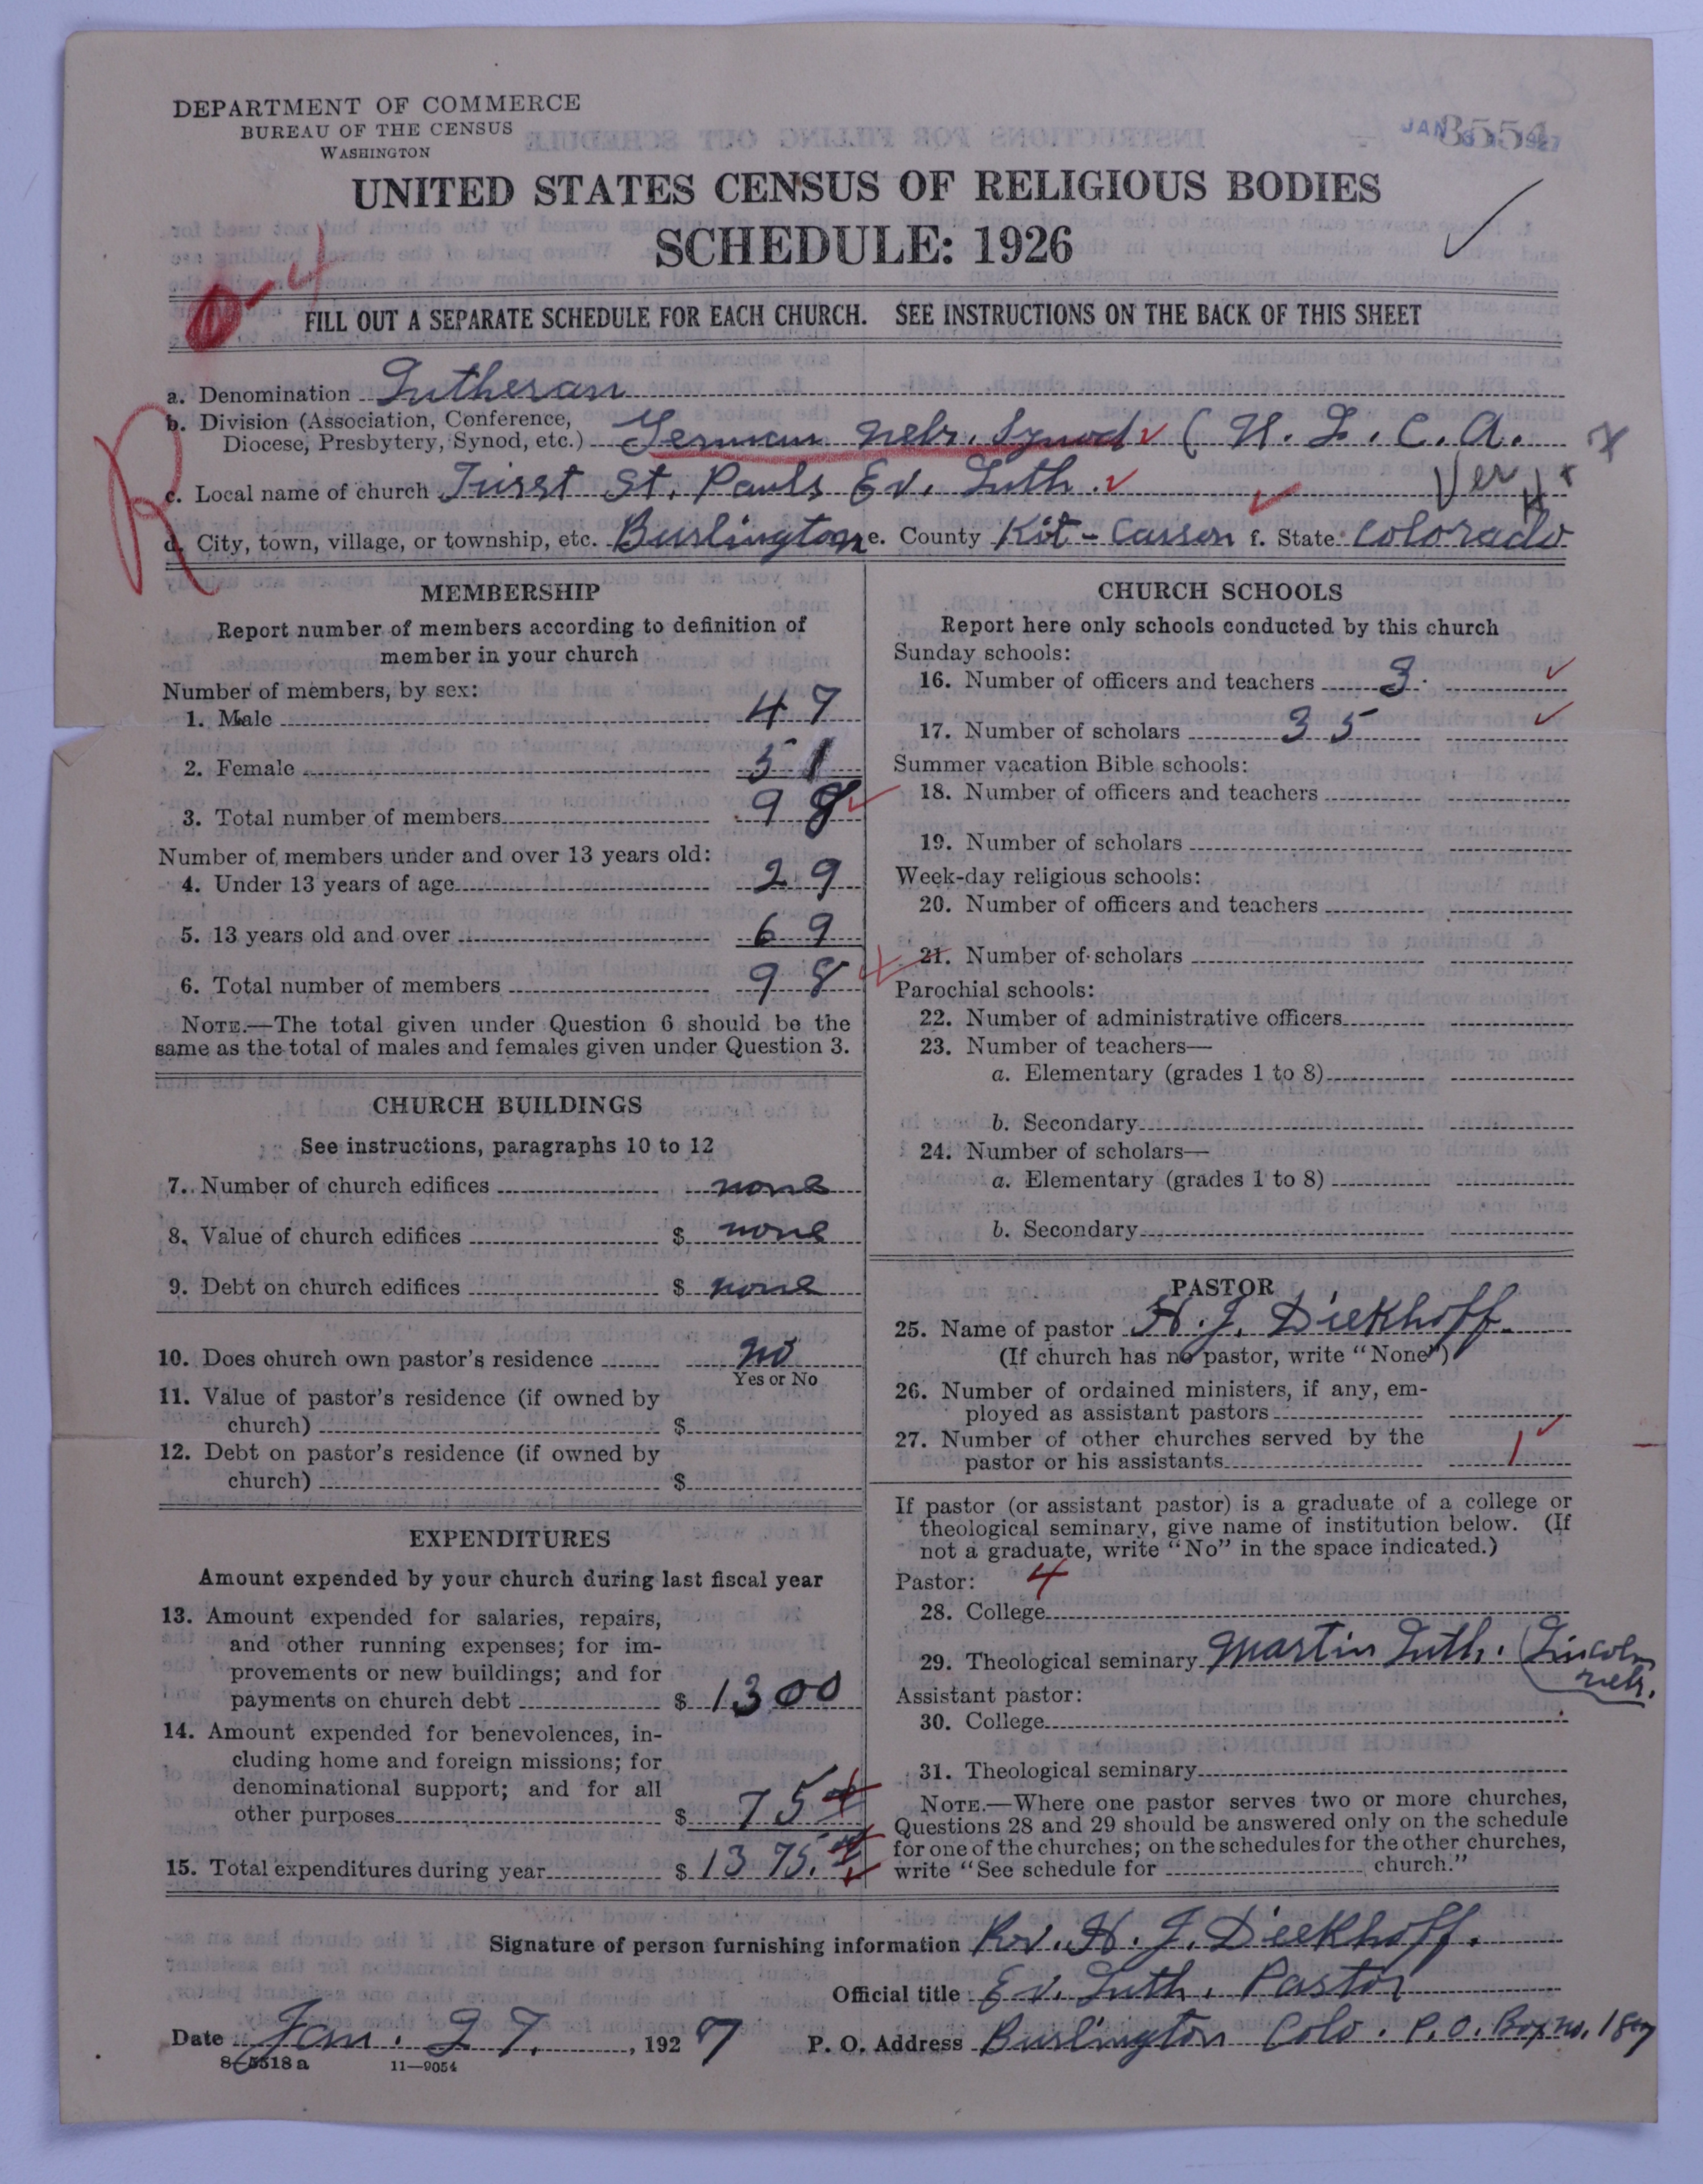 DEPARTMENT OF COMMERCE
BUREAU OF THE CENSUS
WASHINGTON
JAN 1927
3554
UNITED STATES CENSUS OF RELIGIOUS BODIES
SCHEDULE: 1926
FILL OUT A SEPARATE SCHEDULE FOR EACH CHURCH. SEE INSTRUCTIONS ON THE BACK OF THIS SHEET
R
a. Denomination Lutheran
b. Division (Association, Conference,
Diocese, Presbytery, Synod, etc.) German Nebr. Synod (U. L. C. A.
c. Local name of church First St. Pauls Ev. Luth.
d. City, town, village, or township, etc. Burlington e. County Kit-Carson f. State Colorado
MEMBERSHIP
Report number of members according to definition of
member in your church
Number of members, by sex:
1. Male 47
2. Female 51
3. Total number of members 98
Number of members under and over 13 years old:
4. Under 13 years of age 29
5. 13 years old and over 69
6. Total number of members 98
NOTE.—The total given under Question 6 should be the
same as the total of males and females given under Question 3.
CHURCH BUILDINGS
See instructions, paragraphs 10 to 12
7. Number of church edifices none
8. Value of church edifices $ none
9. Debt on church edifices $ none
10. Does church own pastor's residence no
Yes or No
11. Value of pastor's residence (if owned by
church) $
12. Debt on pastor's residence (if owned by
church) $
EXPENDITURES
Amount expended by your church during last fiscal year
13. Amount expended for salaries, repairs,
and other running expenses; for im-
provements or new buildings; and for
payments on church debt $ 1300
14. Amount expended for benevolences, in-
cluding home and foreign missions; for
denominational support; and for all
other purposes $ 75
15. Total expenditures during year $ 1375.
CHURCH SCHOOLS
Report here only schools conducted by this church
Sunday schools:
16. Number of officers and teachers 3
17. Number of scholars 35
Summer vacation Bible schools:
18. Number of officers and teachers
19. Number of scholars
Week-day religious schools:
20. Number of officers and teachers
21. Number of scholars
Parochial schools:
22. Number of administrative officers
23. Number of teachers—
a. Elementary (grades 1 to 8)
b. Secondary
24. Number of scholars—
a. Elementary (grades 1 to 8)
b. Secondary
PASTOR
25. Name of pastor H. J. Diekhoff
(If church has no pastor, write "None")
26. Number of ordained ministers, if any, em-
ployed as assistant pastors
27. Number of other churches served by the
pastor or his assistants 1
If pastor (or assistant pastor) is a graduate of a college or
theological seminary, give name of institution below. (If
not a graduate, write "No" in the space indicated.)
Pastor: 4
28. College
29. Theological seminary Martin Luth. (Lincoln
Nebr.
Assistant pastor:
30. College
31. Theological seminary
NOTE.—Where one pastor serves two or more churches,
Questions 28 and 29 should be answered only on the schedule
for one of the churches; on the schedules for the other churches,
write "See schedule for church."
Signature of person furnishing information Rv. H. J. Diekhoff.
Official title Ev. Luth. Pastor
Date Jan. 27, 1927 P. O. Address Burlington Colo. P.O. Box no. 187
8-5518a 11—9054